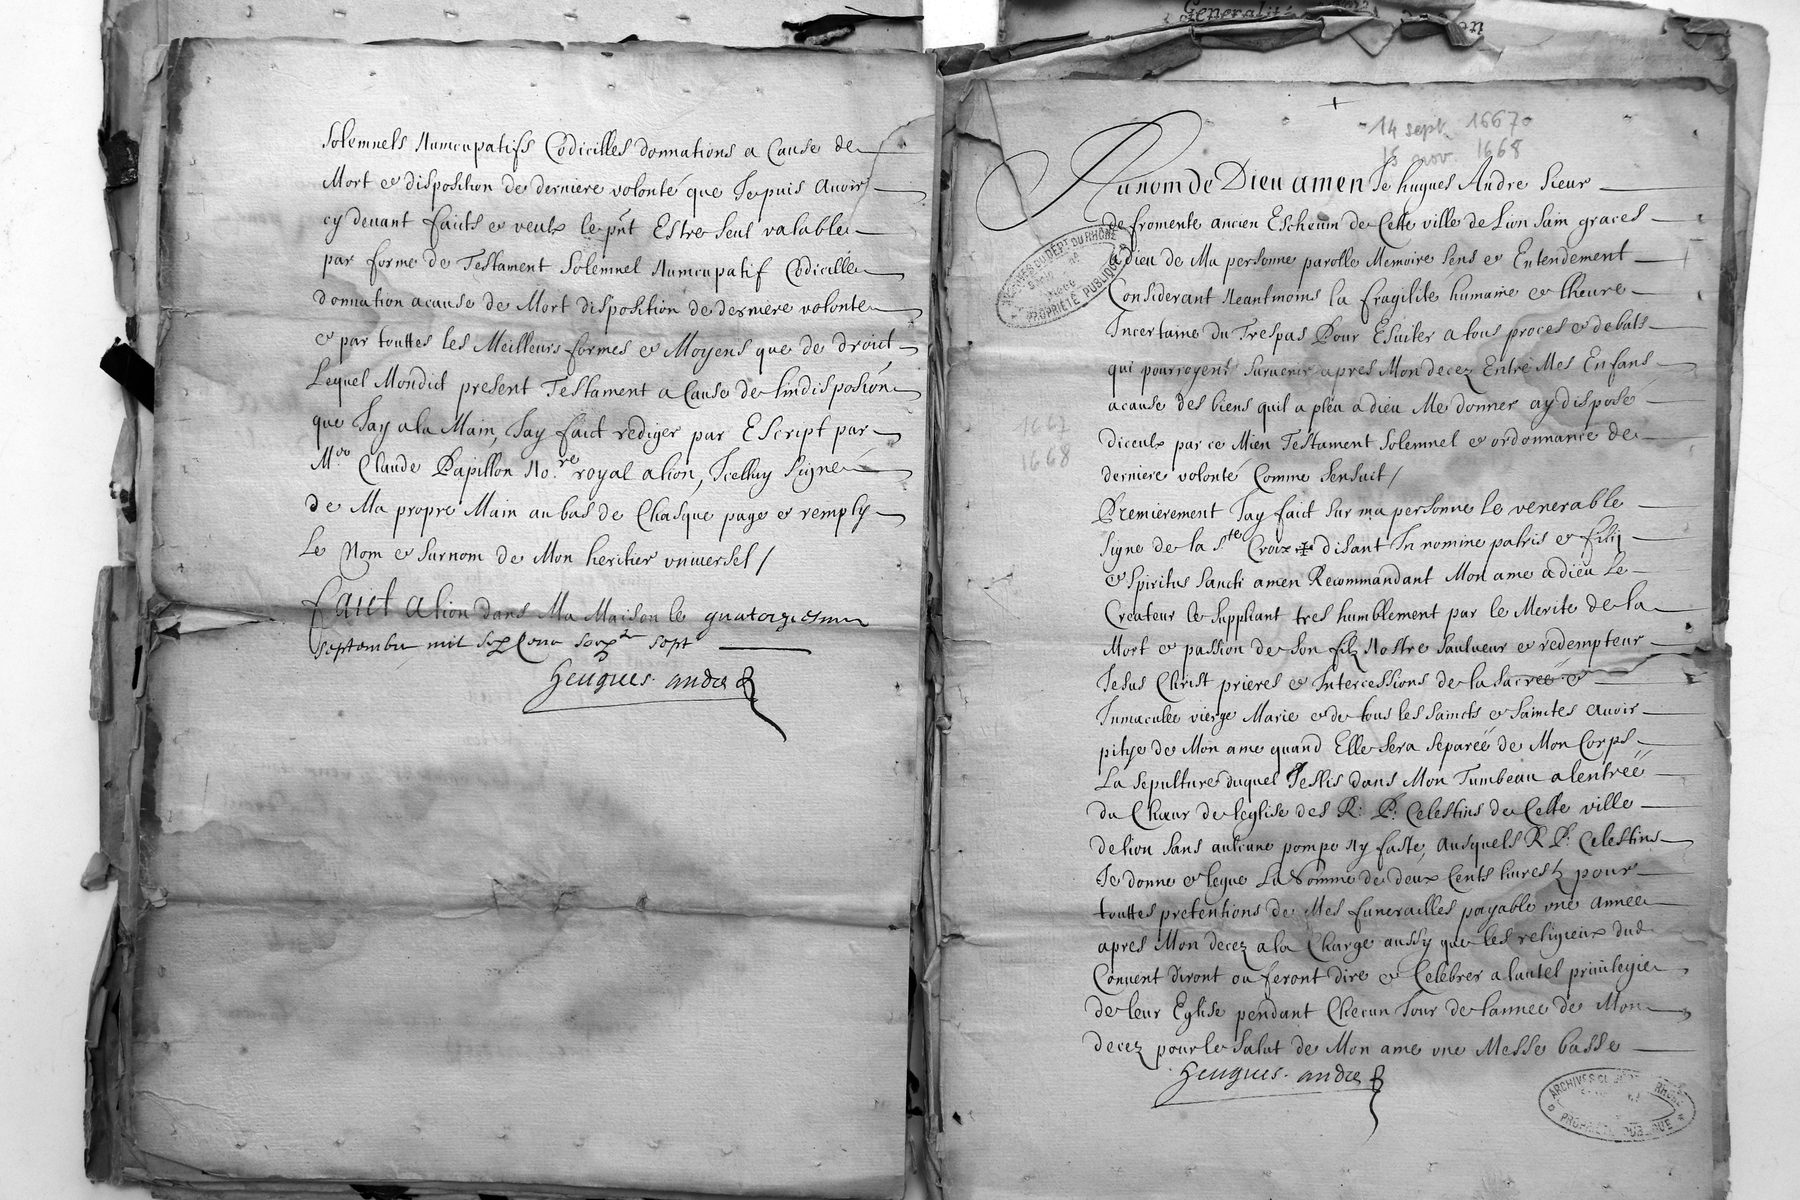 Solemnels Nuncupatifs Codicilles donnations a Cause de
Mort & disposition de derniere volonté que Je puis Avoir
cy devant faicts & veulx le pnt Estre seul valable
par forme de Testament Solemnel Nuncupatif Codicille
donnation a cause de Mort disposition de derniere volonte
& par touttes les Meilleurs formes & Moyens que de droict
Lequel Mondict present Testament a Cause de lindisposion
que Jay a la Main, Jay faict rediger par Escript par
Mre Claude Papillon No.re royal a lion, Icelluy Signé
de Ma propre Main au bas de Chasque page & remply
Le Nom & surnom de Mon heritier universel /
Faict a lion dans Ma Maison le quatorziesme
septembre mil six Cent soixte sept
heugues andre
Generalité
14 sept. 1667
15 nov. 1668
Au nom de Dieu amen Je hugues Andre Sieur
de fromente ancien Eschevin de Cette ville de Lion sain graces
a dieu de Ma personne parolle Memoire sens & Entendement
Considerant Neantmoins la fragilite humaine & lheure
Incertaine du Trespas Pour Esuiter a tous proces & debats
qui pourroyent survenir apres Mon decez Entre Mes Enfans
a cause des biens quil a pleu a dieu Me donner ay disposé
diceulx par ce Mien Testament solemnel & ordonnance de
derniere volonté Comme sensuit /
Premierement Jay faict sur ma personne le venerable
signe de la Ste Croix ✠ disant In nomine patris & filij
& spiritus sancti amen Recommandant Mon ame a dieu Le
Createur le suppliant tres humblement par le Merite de la
Mort & passion de son filz Nostre sauveur & redempteur
Jesus Christ prieres & Intercessions de la sacreé &
Inmaculeé vierge Marie & de tous les saincts & sainctes avoir
pitye de Mon ame quand Elle sera separeé de Mon Corps
La sepulture duquel Jeslis dans Mon Tumbeau a lentreé
du Chœur de leglise des R: P: Celestins de Cette ville
de lion sans aulcune pompe Ny faste, ausquels R P: Celestins
Je donne & legue La somme de deux Cents livres pour
touttes pretentions de Mes funerailles payable une année
apres Mon decez a la Charge aussy que les religieux dud
Convent diront ou feront dire & Celebrer a lautel privilegié
de leur Eglise pendant Checun Jour de lannee de Mon
decez pour le salut de Mon ame une Messe basse
heugues andre
1667
1668
ARCHIVES DU DÉPT DU RHÔNE
PROPRIÉTÉ PUBLIQUE
ARCHIVES
RHÔNE
PROPRIÉTÉ PUBLIQUE